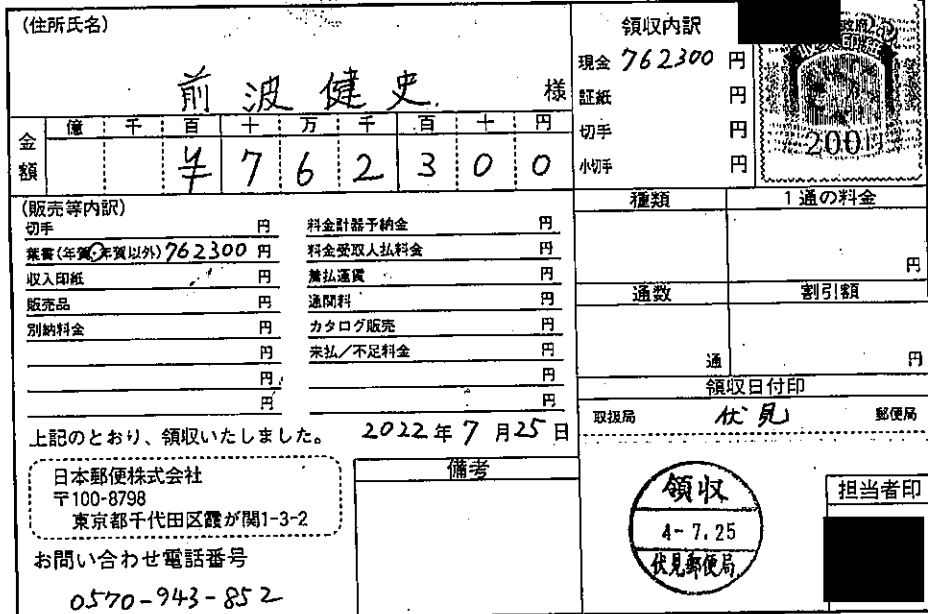 (住所氏名)
前波健史 様
金額
億 千 百 十 万 千 百 十 円
¥ 7 6 2 3 0 0
領収内訳
現金 762300 円
証紙 円
切手 円
小切手 円
200円
(販売等内訳)
切手 円
葉書(年賀・年賀以外) 762300 円
収入印紙 円
販売品 円
別納料金 円
円
円
円
料金計器予納金 円
料金受取人払料金 円
着払運賃 円
通関料 円
カタログ販売 円
未払/不足料金 円
円
円
種類 1通の料金
円
通数 割引額
通 円
領収日付印
取扱局 伏見 郵便局
上記のとおり、領収いたしました。 2022年7月25日
日本郵便株式会社
〒100-8798
東京都千代田区霞が関1-3-2
お問い合わせ電話番号
0570-943-852
備考
領収
4-7.25
伏見郵便局
担当者印